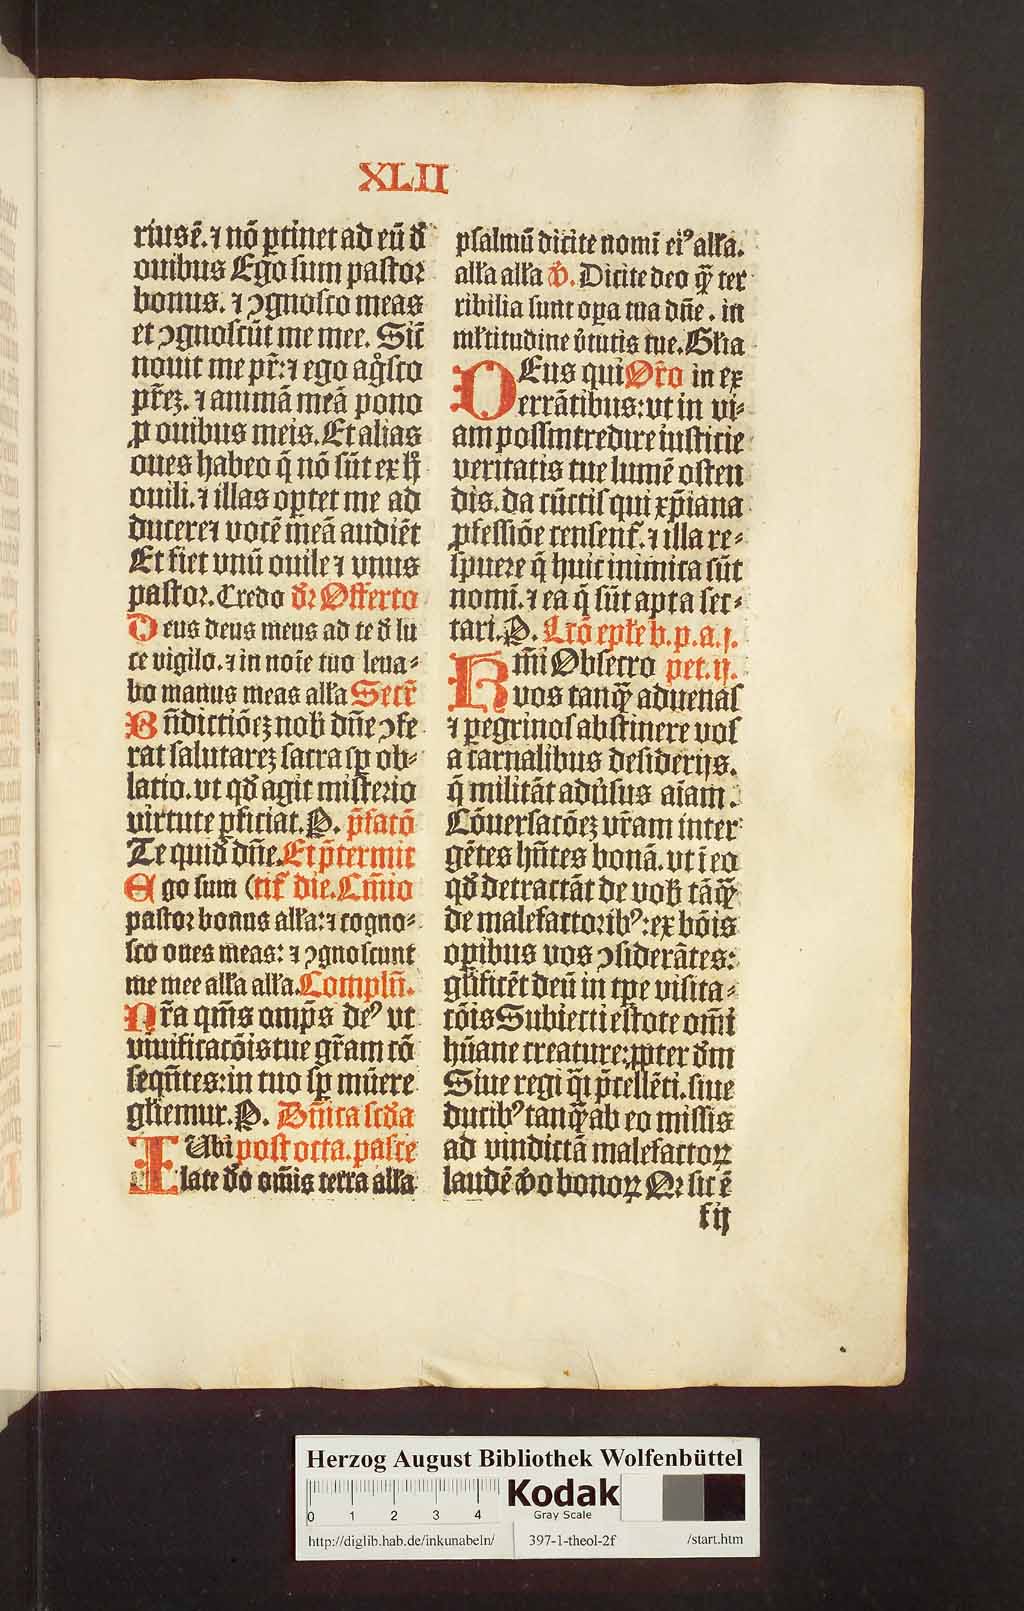 XLII
rius ē. ⁊ nō ꝑtinet ad eū ď
ouibus Ego sum pastor
bonus. ⁊ ꝯgnosco meas
et ꝯgnoscūt me mee. Sic̄
nouit me pr̄: ⁊ ego agͦsco
pr̄eꝫ. ⁊ animā meā pono
ꝓ ouibus meis. Et alias
oues habeo q̄ nō sūt ex hͦ
ouili. ⁊ illas oꝑtet me ad
ducere ⁊ vocē meā audiēt
Et fiet vnū ouile ⁊ vnus
pastor. Credo ďꝛ Offerto
Deus deus meus ad te ď lu
ce vigilo. ⁊ in noīe tuo leua⸗
bo manus meas all'a Secr̄
Bn̄dictiōeꝫ nob̄ dn̄e ꝯfe
rat salutareꝫ sacra sꝑ ob⸗
latio. vt qď agit misterio
virtute ꝑficiat. P. p̄fatō
Te quiď dn̄e. Et p̄termit
Ego sum (tit̄ die. Cm̄io
pastor bonus all'a: ⁊ cogno⸗
sco oues meas: ⁊ ꝯgnoscunt
me mee all'a all'a. Compln̄.
Nr̄a qm̄s omp̄s deꝰ vt
viuificatōis tue gr̄am cō
seqn̄tes: in tuo sꝑ mūere
gl'iemur. P. Dn̄ica scďa
IUbi post octa. pasce
late ďo om̄is terra all'a
psalmū dicite nomī eiꝰ all'a.
all'a all'a ℣. Dicite deo qꝫ̄ ter
ribilia sunt oꝑa tua dn̄e. in
ml'titudine v̓tutis tue. Gl'ia
DEus qui Or̄o in ex
errātibus: vt in vi⸗
am possint redire iusticie
veritatis tue lumē osten
dis. da cūctis qui xp̄iana
ꝓfessiōe censent̄. ⁊ illa re⸗
spuere q̄ huic inimica sūt
nomī. ⁊ ea q̄ sūt apta sec⸗
tari. P. Lc̄o epl'e b. p. a. j.
Km̄i Obsecro pet. ij.
vos tanqꝫ̄ aduenas
⁊ ꝑegrinos abstinere vos
a carnalibus desiderijs.
q̄ militāt adu̓sus aīam.
Cōuersatōeꝫ vr̄am inter
gētes hn̄tes bonā. vt ī eo
qď detractāt de vob̄ tāqꝫ̄
de malefactoribꝰ: ex bōis
oꝑibus vos ꝯsiderātes:
gl'ificēt deū in tꝑe visita⸗
tōis Subiecti estote om̄i
hūane creature: ꝓpter ďm
Siue regi qͣi p̄cellēti. siue
ducibꝰ tanqꝫ̄ ab eo missis
ad vindictā malefactoꝝ
laudē v̓o bonoꝝ Qꝛ sic ē
f ij
Herzog August Bibliothek Wolfenbüttel
0 1 2 3 4
Kodak
Gray Scale
http://diglib.hab.de/inkunabeln/ 397-1-theol-2f /start.htm